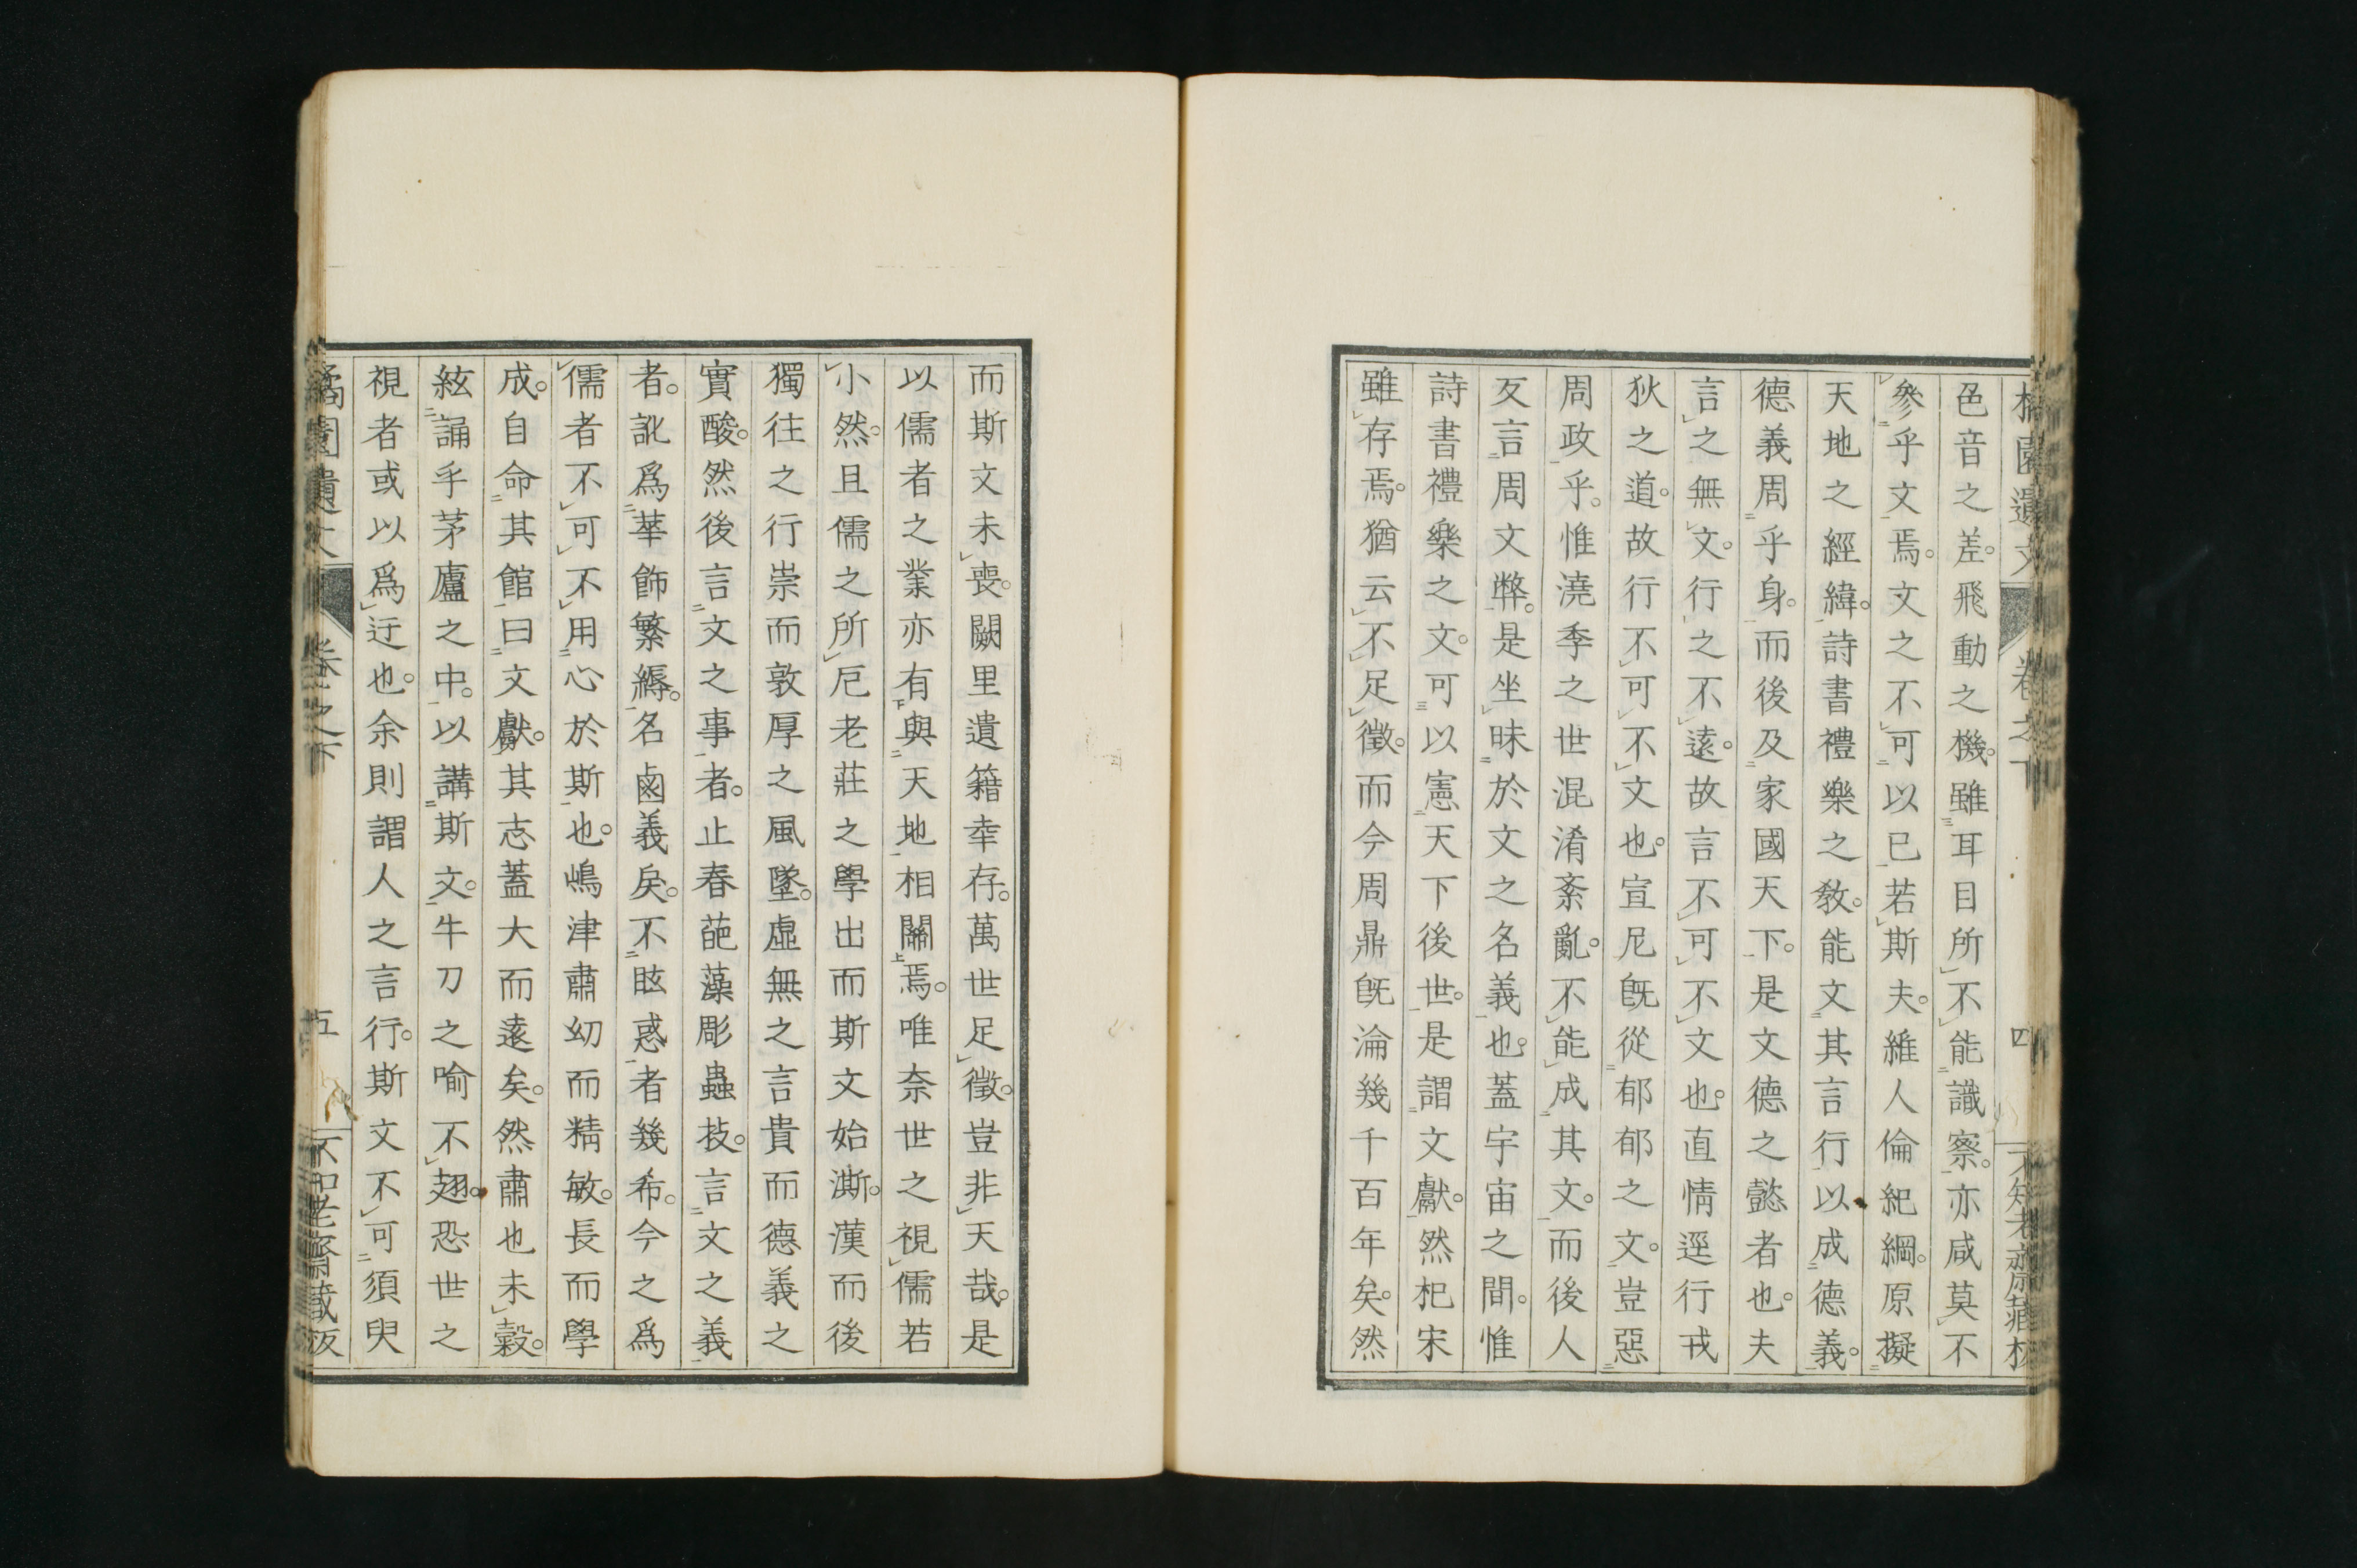 橘園遺文 卷之下 四 不知老齋藏板
色音之差。飛動之機。雖耳目所不能識察。亦咸莫不
參乎文焉。文之不可以已若斯夫。維人倫紀綱。原擬
天地之經緯。詩書禮樂之教。能文其言行以成德義。
德義周乎身。而後及家國天下。是文德之懿者也。夫
言之無文。行之不遠。故言不可不文也。直情逕行戎
狄之道。故行不可不文也。宣尼旣從郁郁之文。豈惡
周政乎。惟澆季之世混淆紊亂。不能成其文。而後人
叐言周文弊。是坐昧於文之名義也。蓋宇宙之間。惟
詩書禮樂之文。可以憲天下後世。是謂文獻。然杞宋
雖存焉。猶云不足徵。而今周鼎旣淪幾千百年矣。然
而斯文未喪。闕里遺籍幸存。萬世足徵。豈非天哉。是
以儒者之業亦有與天地相關焉。唯奈世之視儒若
小然。且儒之所厄老莊之學出而斯文始澌。漢而後
獨往之行崇而敦厚之風墜。虛無之言貴而德義之
實酸。然後言文之事者。止春葩藻彫蟲技。言文之義
者。訛爲華飾繁縟。名鹵義戾。不眩惑者幾希。今之爲
儒者不可不用心於斯也。嶋津肅幼而精敏。長而學
成。自命其館曰文獻。其志蓋大而遠矣。然肅也未穀。
絃誦乎茅廬之中。以講斯文。牛刀之喻不翅。恐世之
視者或以爲迂也。余則謂人之言行。斯文不可須臾
橘園遺文 卷之下 五 不知老齋藏板